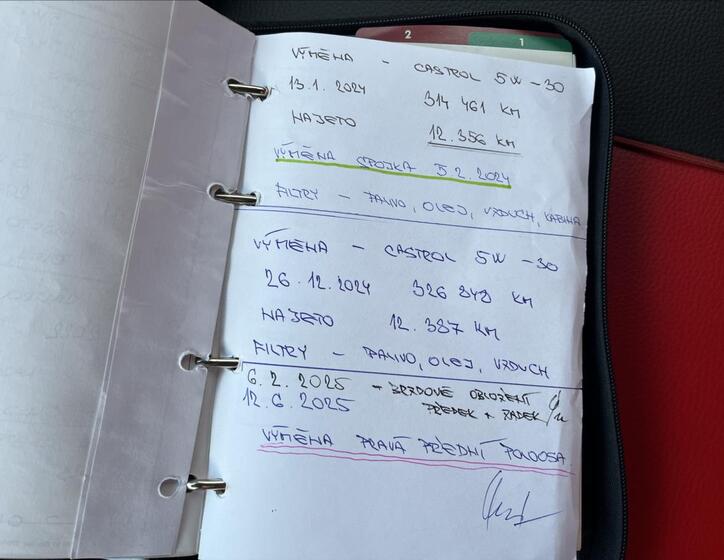 2
1
VÝMĚNA – CASTROL 5W-30
13.1. 2024 314 461 KM
NAJETO 12.356 KM
VÝMĚNA SPOJKA 5.2.2024
FILTRY – PALIVO, OLEJ, VZDUCH, KABINA
VÝMĚNA – CASTROL 5W-30
26.12.2024 326 848 KM
NAJETO 12.387 KM
FILTRY – PALIVO, OLEJ, VZDUCH
6.2.2025 – BRZDOVÉ OBLOŽENÍ
12.6.2025 PŘEDEK + ZADEK
VÝMĚNA PRAVÁ PŘEDNÍ POLOOSA